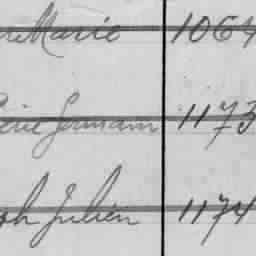 Marie 1064
Germain 1173
Julien 1174